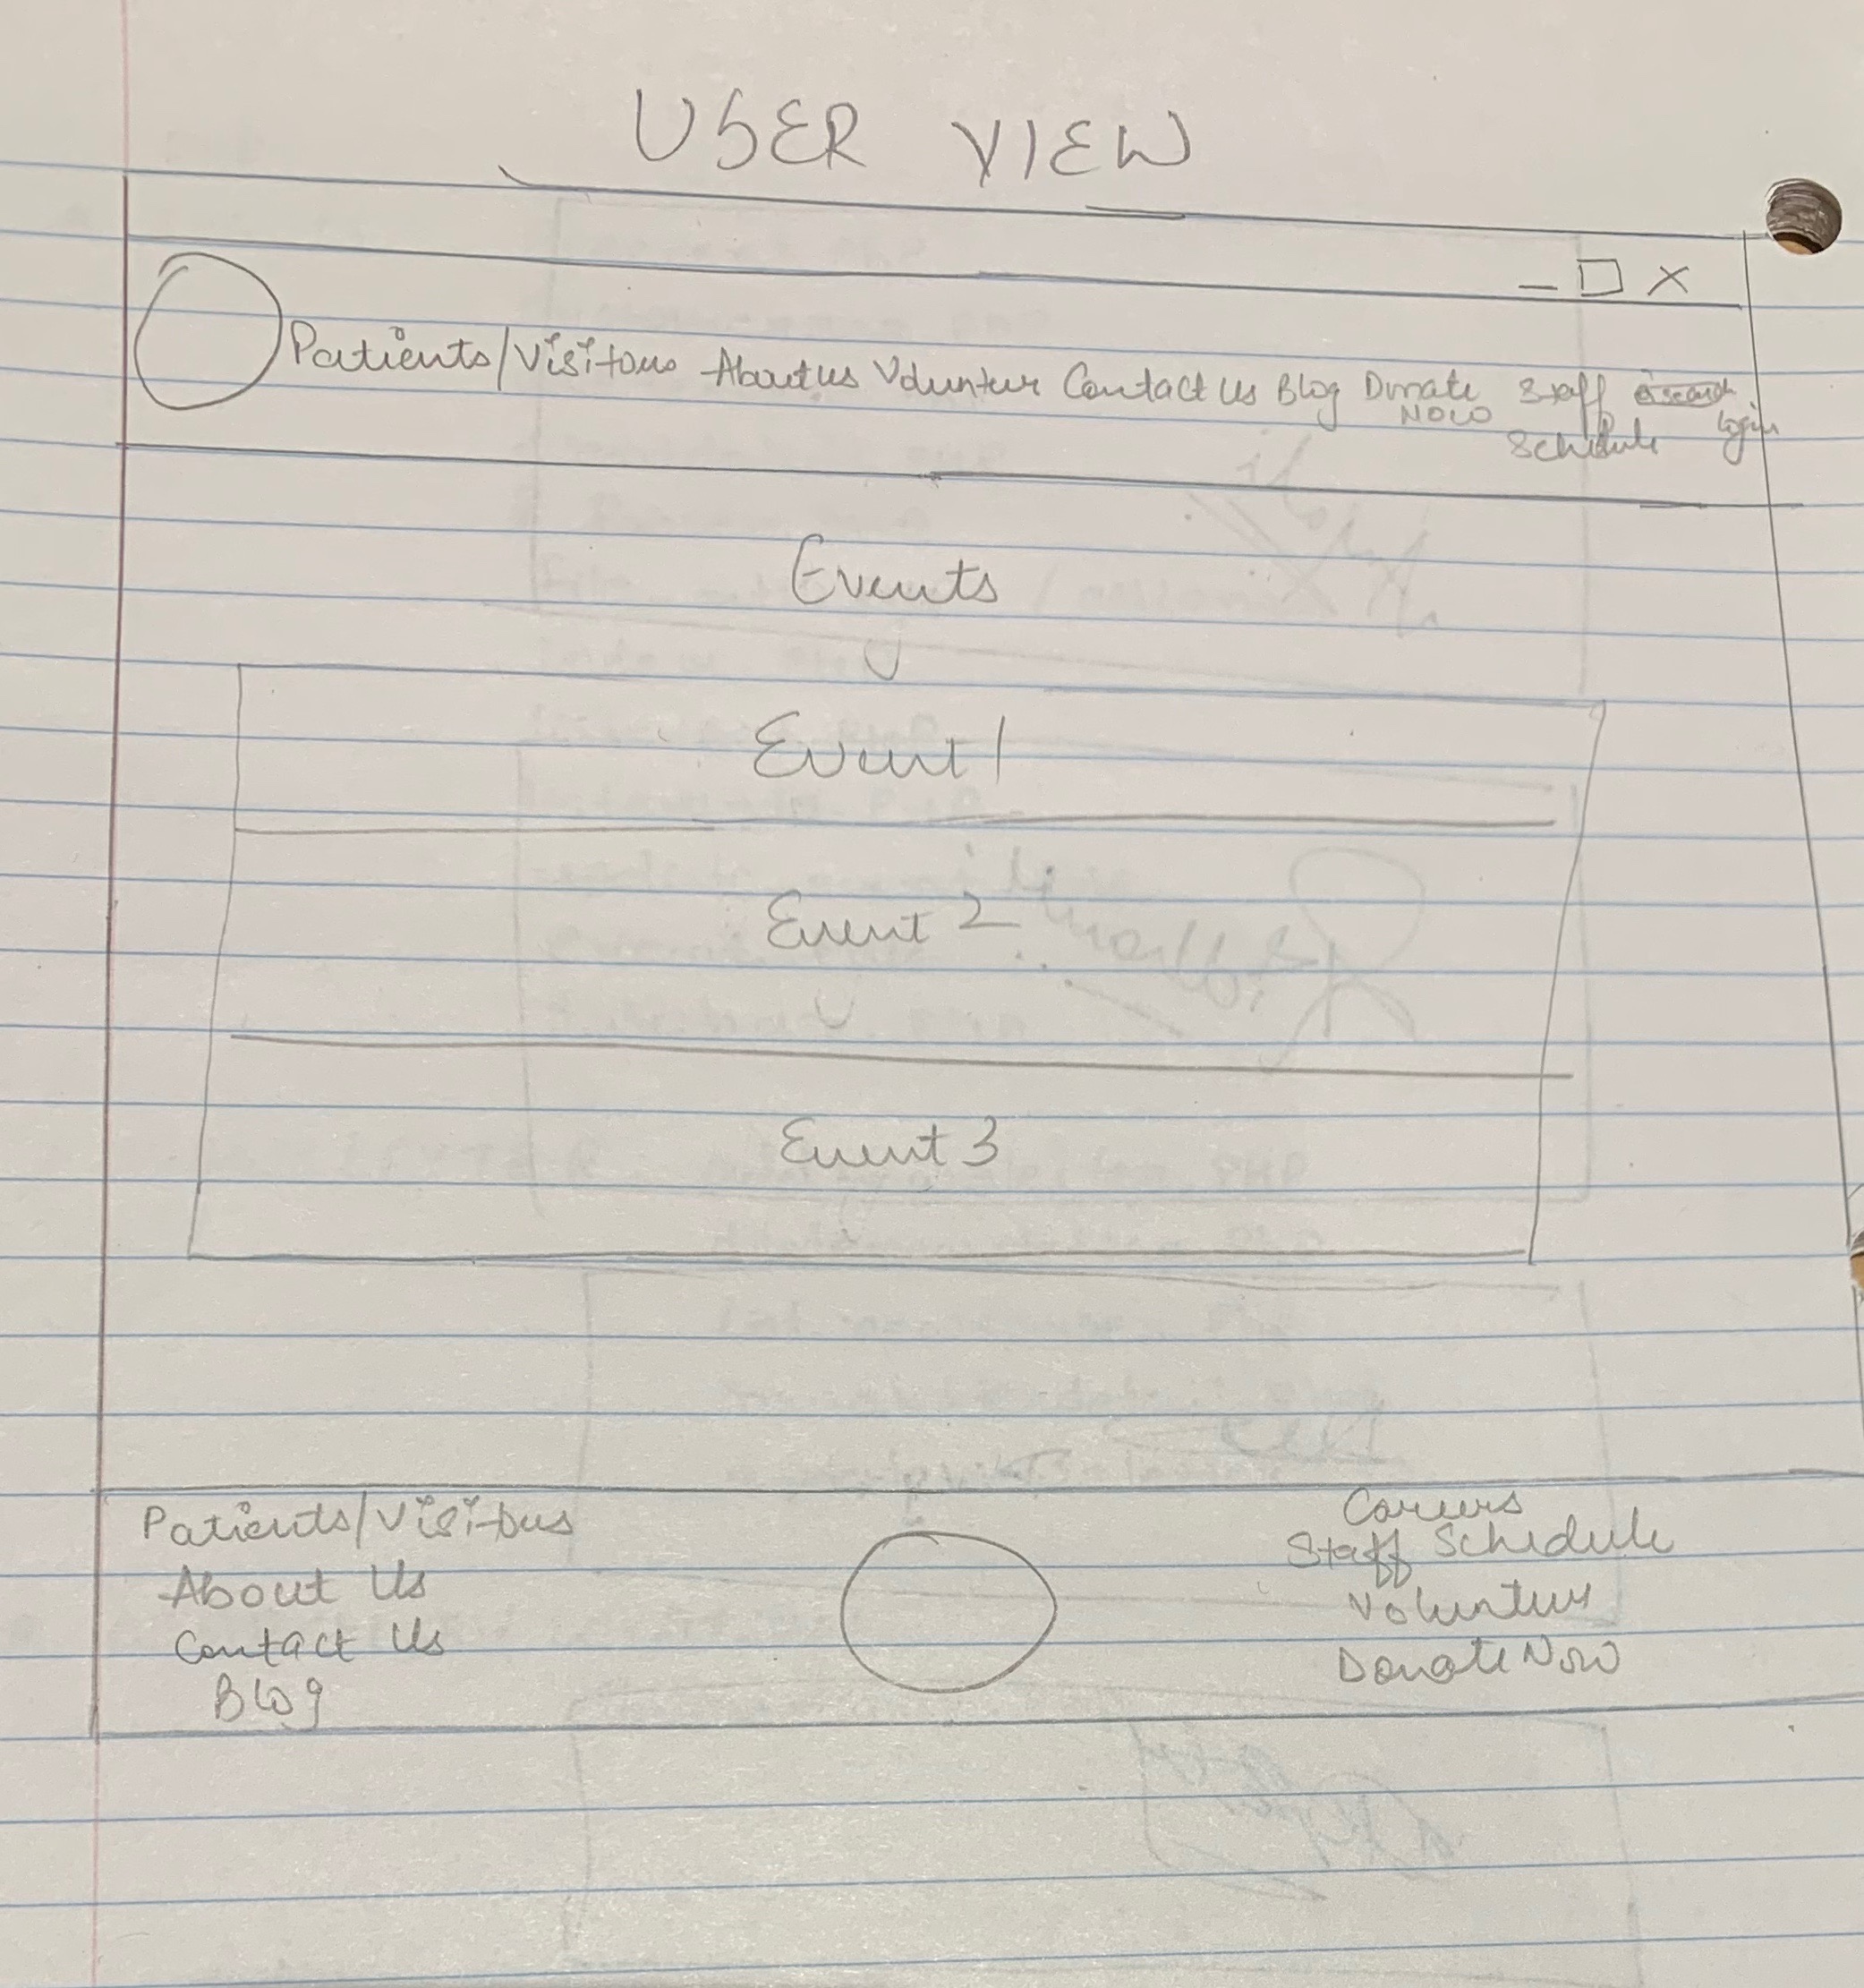 USER VIEW
Patients/Visitors About us Volunteer Contact Us Blog Donate Now Staff Schedule Login
Events
Event 1
Event 2
Event 3
Patients/Visitors
About Us
Contact Us
Blog
Careers
Staff Schedule
Volunteer
Donate Now